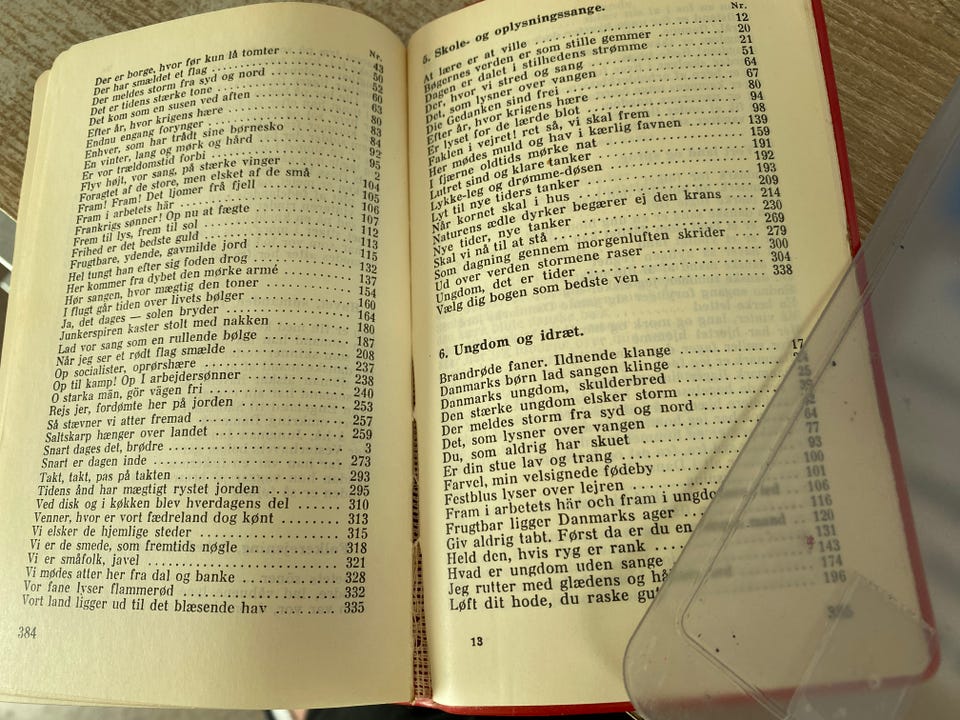 Nr.
Der er borge, hvor før kun lå tomter 43
Der har smældet et flag 50
Der meldes storm fra syd og nord 52
Det er tidens stærke tone 60
Det kom som en susen ved aften 63
Efter år, hvor krigens hære 80
Endnu engang forynger 83
Enhver, som har trådt sine børnesko 84
En vinter, lang og mørk og hård 92
Er vor trældomstid forbi 95
Flyv højt, vor sang, på stærke vinger 2
Foragtet af de store, men elsket af de små 104
Fram! Fram! Det ljomer frå fjell 105
Fram i arbejtets hær 106
Frankrigs sønner! Op nu at fægte 107
Frem til lys, frem til sol 112
Frihed er det bedste guld 113
Frugtbare, ydende, gavmilde jord 115
Hel tungt han efter sig foden drog 132
Her kommer fra dybet den mørke armé 137
Hør sangen, hvor mægtig den toner 154
I flugt går tiden over livets bølger 160
Ja, det dages — solen bryder 164
Junkerspiren kaster stolt med nakken 180
Lad vor sang som en rullende bølge 187
Når jeg ser et rødt flag smælde 208
Op socialister, oprørshære 237
Op til kamp! Op I arbejdersønner 238
O starka män, gör vägen fri 240
Rejs jer, fordømte her på jorden 253
Så stævner vi atter fremad 257
Saltskarp hænger over landet 259
Snart dages det, brødre 3
Snart er dagen inde 273
Takt, takt, pas på takten 293
Tidens ånd har mægtigt rystet jorden 295
Ved disk og i køkken blev hverdagens del 310
Venner, hvor er vort fædreland dog kønt 313
Vi elsker de hjemlige steder 315
Vi er de smede, som fremtids nøgle 318
Vi er småfolk, javel 321
Vi mødes atter her fra dal og banke 328
Vor fane lyser flammerød 332
Vort land ligger ud til det blæsende hav 335
384
5. Skole- og oplysningssange. Nr.
At lære er at ville 12
Bøgernes verden er som stille gemmer 20
Dagen er dalet i stilhedens strømme 21
Der, hvor vi stred og sang 51
Det, som lysner over vangen 64
Die Gedanken sind frei 67
Efter år, hvor krigens hære 80
Er lyset for de lærde blot 94
Faklen i vejret! ret så, vi skal frem 98
Her mødes muld og hav i kærlig favnen 139
I fjerne oldtids mørke nat 159
Lutret sind og klare tanker 191
Lykke-leg og drømme-døsen 192
Lyt til nye tiders tanker 193
Når kornet skal i hus 209
Naturens ædle dyrker begærer ej den krans 214
Nye tider, nye tanker 230
Skal vi nå til at stå 269
Som dagning gennem morgenluften skrider 279
Ud over verden stormene raser 300
Ungdom, det er tider 304
Vælg dig bogen som bedste ven 338
6. Ungdom og idræt.
Brandrøde faner. Ildnende klange 17
Danmarks børn lad sangen klinge 24
Danmarks ungdom, skulderbred 25
Den stærke ungdom elsker storm 39
Der meldes storm fra syd og nord
Det, som lysner over vangen 64
Du, som aldrig har skuet 77
Er din stue lav og trang 93
Farvel, min velsignede fødeby 100
Festblus lyser over lejren 101
Fram i arbejtets hær och fram i 106
Frugtbar ligger Danmarks ager 116
Giv aldrig tabt. Først da er du en 120
Held den, hvis ryg er rank 131
Hvad er ungdom uden sange 143
Jeg rutter med glædens og 174
Løft dit hode, du raske 196
13